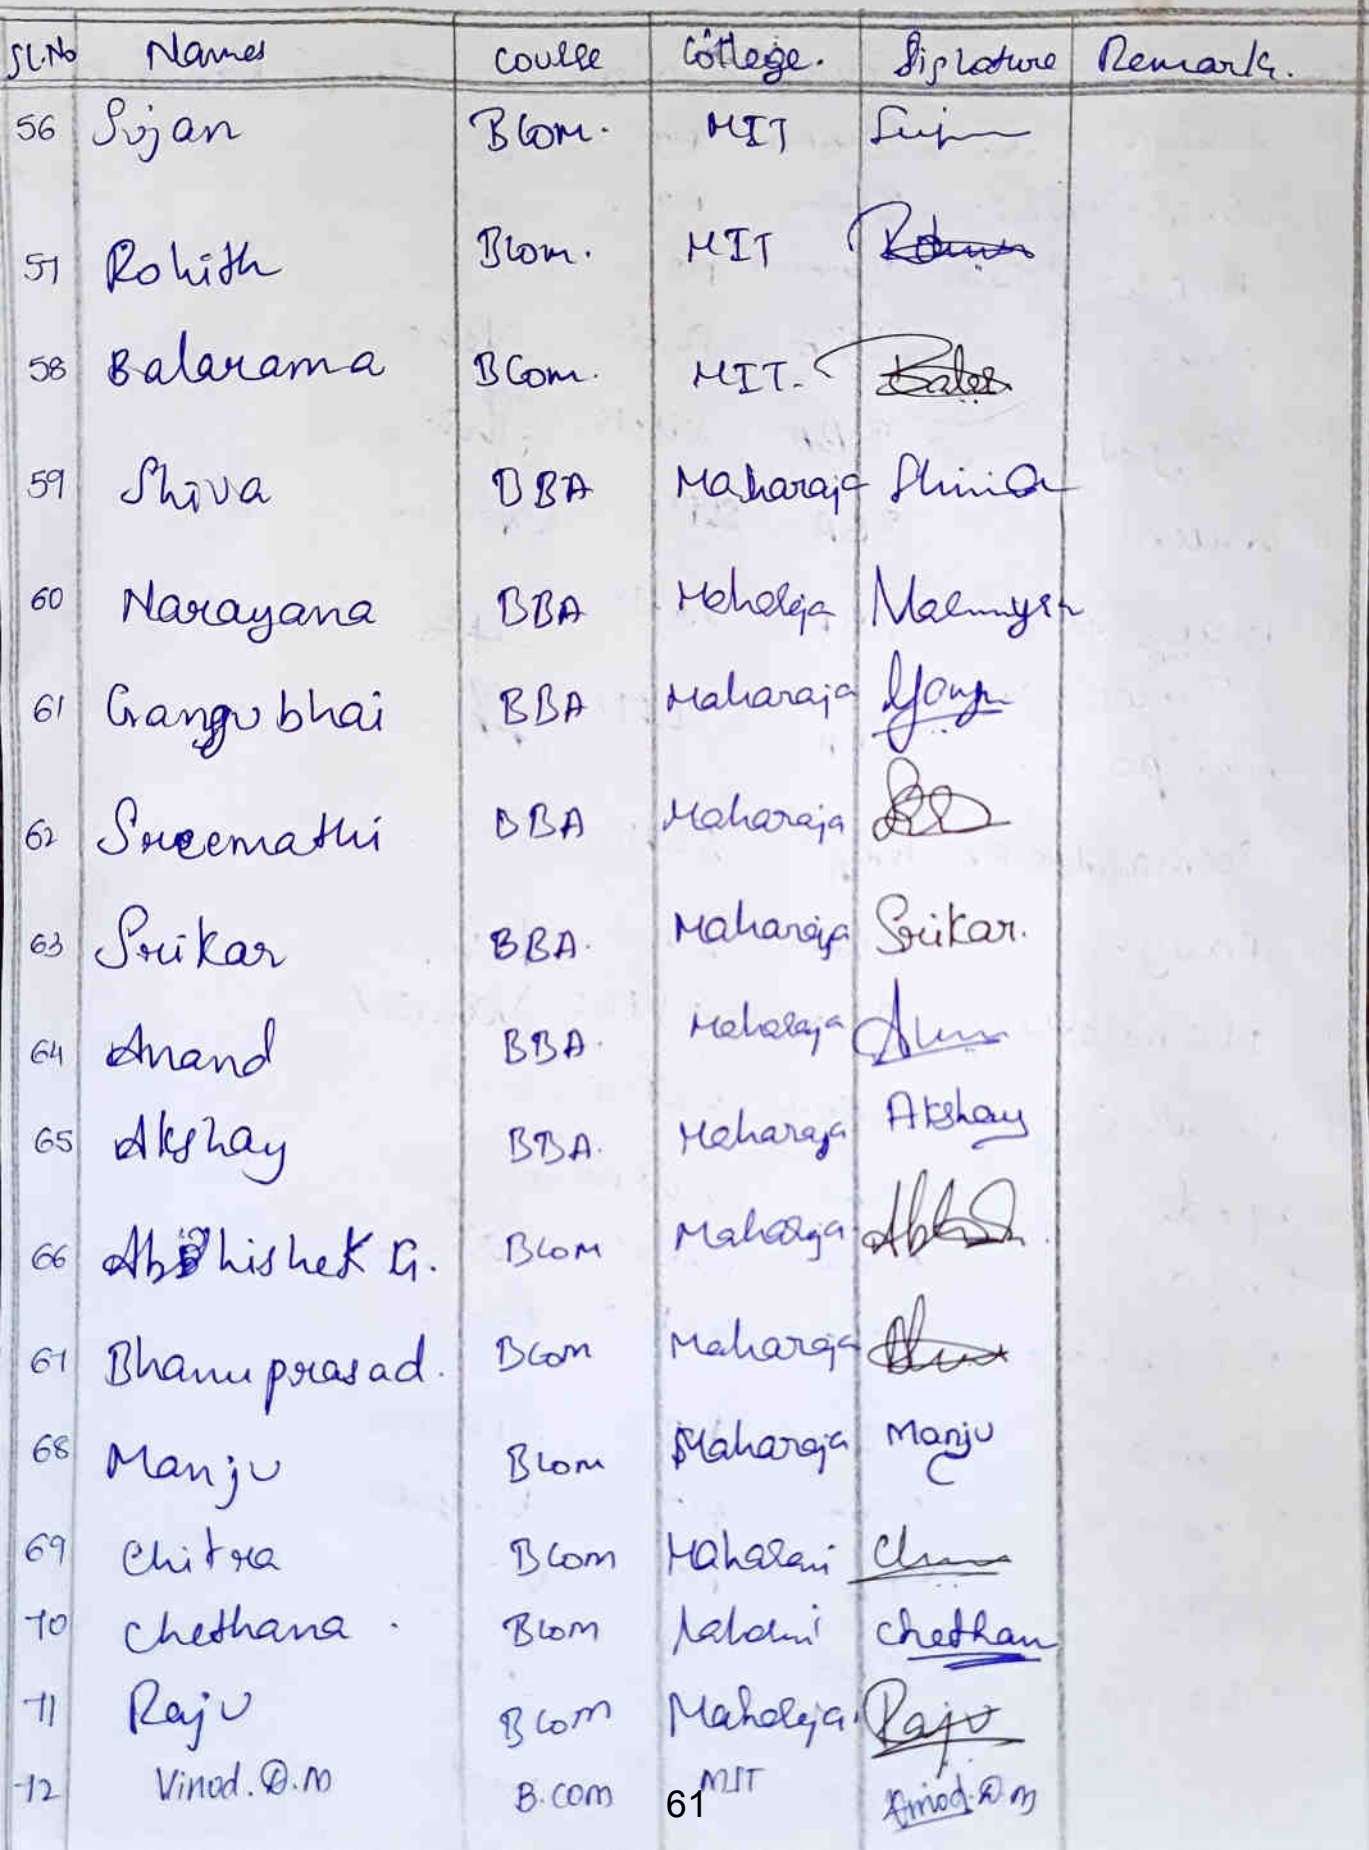 Sl.No Names Course College. Signature Remark.
56 Sujan BCom. MIT
57 Rohith BCom. MIT
58 Balarama BCom. MIT.
59 Shiva BBA Maharaja Shiva
60 Narayana BBA Maharaja
61 Gangubhai BBA Maharaja
62 Sreemathi BBA Maharaja
63 Srikar BBA. Maharaja Srikar.
64 Anand BBA. Maharaja
65 Akshay BBA. Maharaja Akshay
66 Abhishek G. BCom Maharaja
67 Bhanuprasad. BCom Maharaja
68 Manju BCom Maharaja Manju
69 Chitra BCom Maharani
70 Chethana. BCom Chethan
71 Raju BCom Maharaja. Raju
72 Vinod.D.M B.COM MIT Vinod.D.M
61